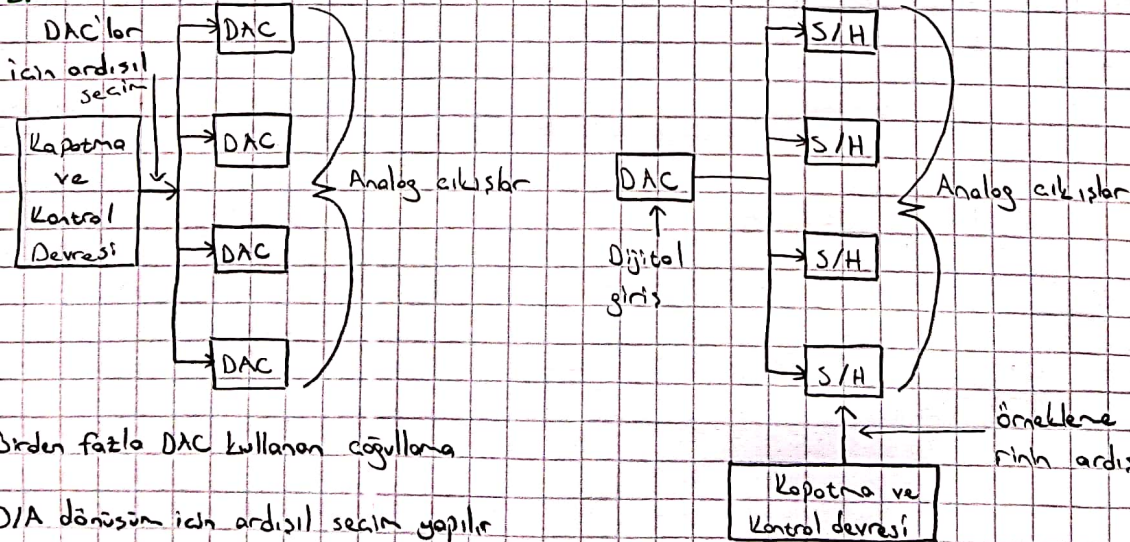 DAC'lar
için ardışıl
seçim
Kapatma
ve
Kontrol
Devresi
DAC
DAC
DAC
DAC
Analog çıkışlar
Birden fazla DAC kullanan çoğullama
D/A dönüşüm için ardışıl seçim yapılır
DAC
Dijital
giriş
S/H
S/H
S/H
S/H
Analog çıkışlar
örnekleme
rinin ardış
Kapatma ve
Kontrol devresi